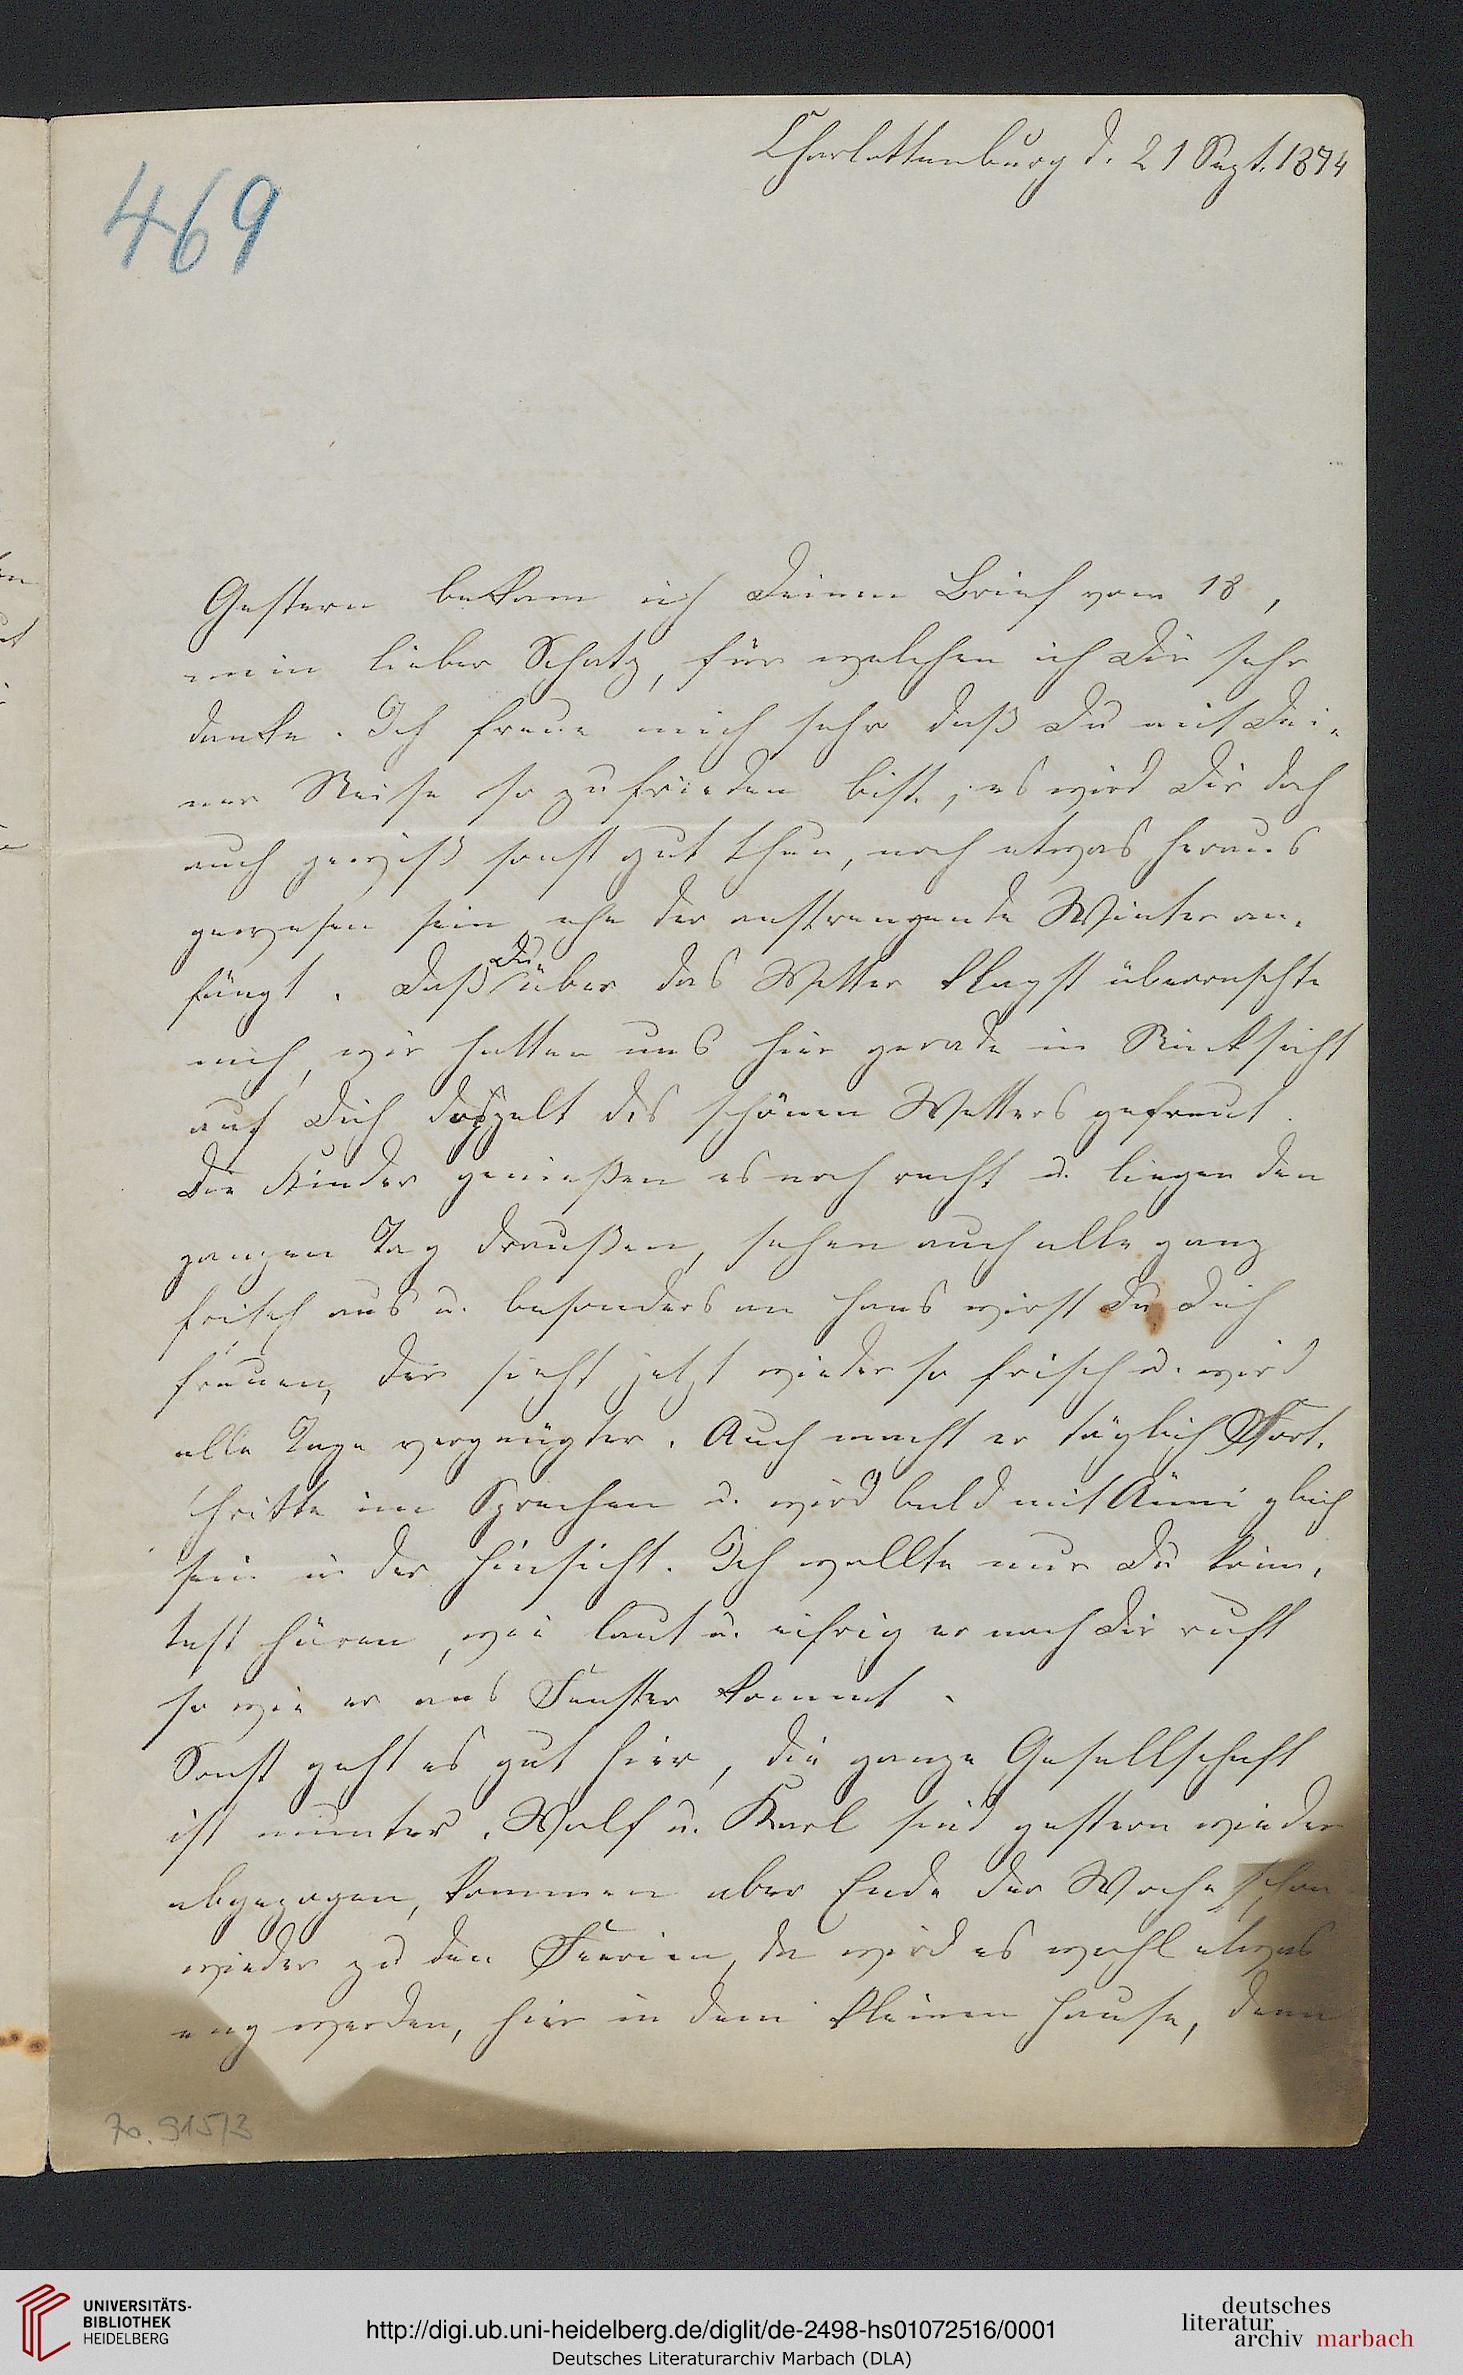 Charlottenburg d. 21 Sept. 1874
469
Gestern bekam ich Deinen Brief vom 18,
mein lieber Schatz, für welchen ich Dir sehr
danke. Ich freue mich sehr daß Du mit Dei-
ner Reise so zufrieden bist, es wird Dir doch
auch gewiß sonst gut thun, noch etwas heraus
gewesen sein ehe der anstrengende Winter an-
fängt. Daß Du über das Wetter klagst überraschte
mich, wir hatten uns hier gerade in Rücksicht
auf Dich doppelt des schönen Wetters gefreut.
Die Kinder genießen es noch recht u. liegen den
ganzen Tag draußen, sehen auch alle ganz
frisch aus u. besonders an Hans wirst Du Dich
freuen, der sieht jetzt wieder so frisch u. wird
alle Tage vergnügter. Auch macht er täglich Fort-
schritte im Sprechen u. wird bald mit Änni gleich
sein in der Hinsicht. Ich wollte nur Du könn-
test hören, wie laut u. eifrig er nach Dir ruft
so wie er ans Fenster kommt.
Sonst geht es gut hier, die ganze Gesellschaft
ist munter. Wolf u. Karl sind gestern wieder
abgezogen, kommen aber Ende der Woche schon
wieder zu den Feerien, da wird es wohl etwas
eng werden, hier in dem kleinen Hause, denn
70.915/3
UNIVERSITÄTS-
BIBLIOTHEK
HEIDELBERG
http://digi.ub.uni-heidelberg.de/diglit/de-2498-hs01072516/0001
Deutsches Literaturarchiv Marbach (DLA)
deutsches
literatur
archiv marbach